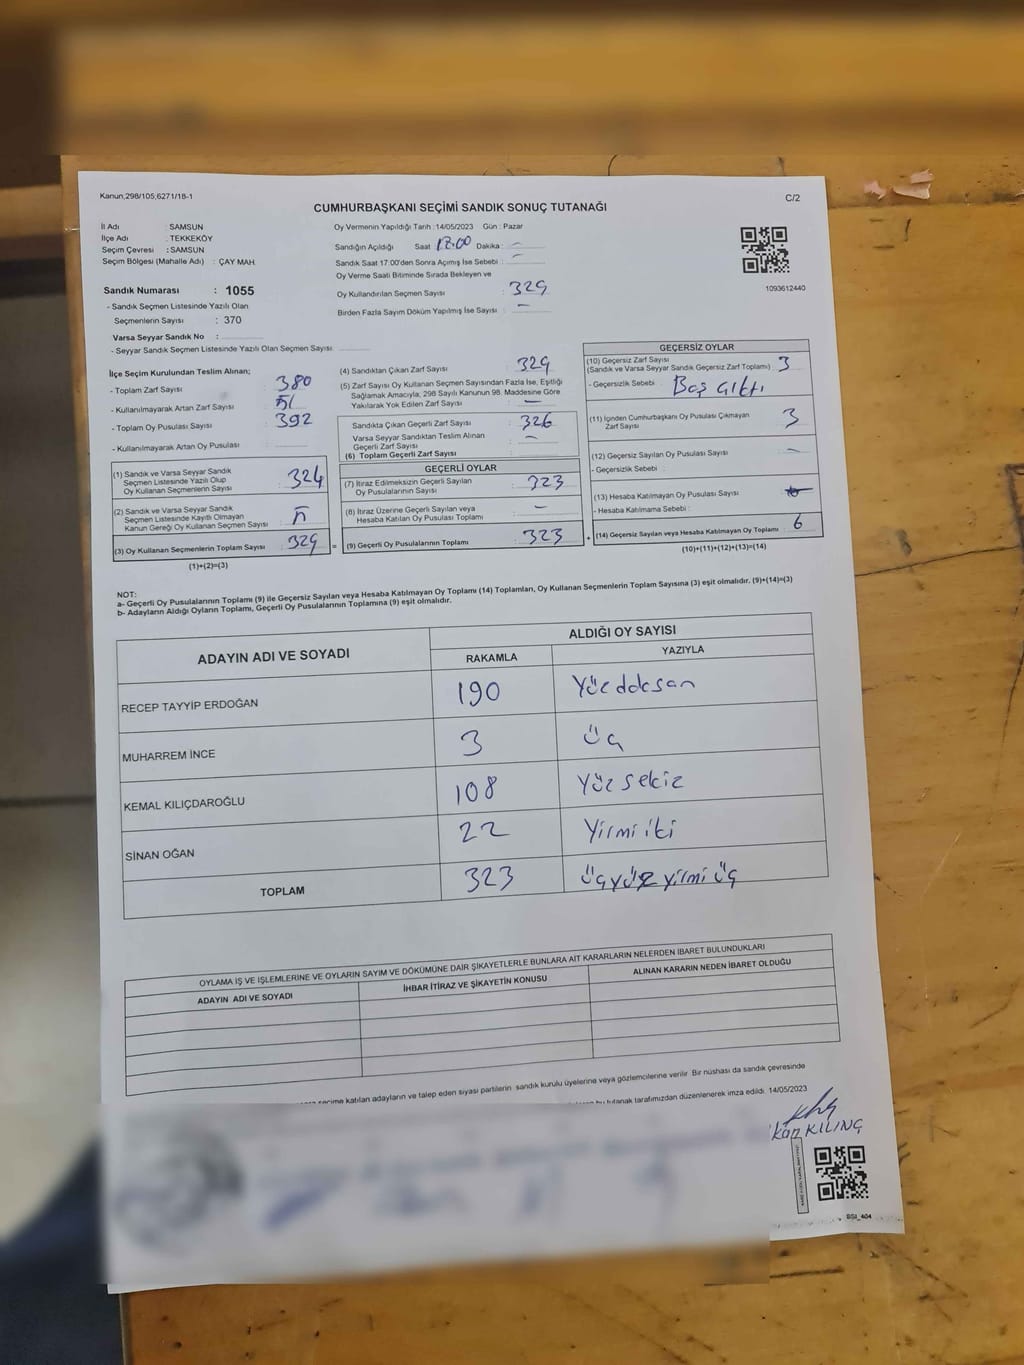 Kanun,298/105,6271/18-1
C/2
CUMHURBAŞKANI SEÇİMİ SANDIK SONUÇ TUTANAĞI
İl Adı : SAMSUN
İlçe Adı : TEKKEKÖY
Seçim Çevresi : SAMSUN
Seçim Bölgesi (Mahalle Adı) : ÇAY MAH.
Sandık Numarası : 1055
- Sandık Seçmen Listesinde Yazılı Olan
Seçmenlerin Sayısı : 370
Varsa Seyyar Sandık No :
- Seyyar Sandık Seçmen Listesinde Yazılı Olan Seçmen Sayısı:
Oy Vermenin Yapıldığı Tarih :14/05/2023 Gün : Pazar
Sandığın Açıldığı Saat 17:00 Dakika : -
Sandık Saat 17:00'den Sonra Açımış İse Sebebi : -
Oy Verme Saati Bitiminde Sırada Bekleyen ve
Oy Kullandırılan Seçmen Sayısı : 329
Birden Fazla Sayım Döküm Yapılmış İse Sayısı : -
1093612440
İlçe Seçim Kurulundan Teslim Alınan;
- Toplam Zarf Sayısı : 380
- Kullanılmayarak Artan Zarf Sayısı : 51
- Toplam Oy Pusulası Sayısı : 392
- Kullanılmayarak Artan Oy Pusulası :
(1) Sandık ve Varsa Seyyar Sandık
Seçmen Listesinde Yazılı Olup
Oy Kullanan Seçmenlerin Sayısı : 324
(2) Sandık ve Varsa Seyyar Sandık
Seçmen Listesinde Kayıtlı Olmayan
Kanun Gereği Oy Kullanan Seçmen Sayısı : 5
(3) Oy Kullanan Seçmenlerin Toplam Sayısı : 329
(1)+(2)=(3)
(4) Sandıktan Çıkan Zarf Sayısı : 329
(5) Zarf Sayısı Oy Kullanan Seçmen Sayısından Fazla İse, Eşitliği
Sağlamak Amacıyla, 298 Sayılı Kanunun 98. Maddesine Göre
Yakılarak Yok Edilen Zarf Sayısı : -
Sandıkta Çıkan Geçerli Zarf Sayısı : 326
Varsa Seyyar Sandıktan Teslim Alınan
Geçerli Zarf Sayısı : -
(6) Toplam Geçerli Zarf Sayısı :
GEÇERLİ OYLAR
(7) İtiraz Edilmeksizin Geçerli Sayılan
Oy Pusulalarının Sayısı : 323
(8) İtiraz Üzerine Geçerli Sayılan veya
Hesaba Katılan Oy Pusulası Toplamı : -
= (9) Geçerli Oy Pusulalarının Toplamı : 323
GEÇERSİZ OYLAR
(10) Geçersiz Zarf Sayısı
(Sandık ve Varsa Seyyar Sandık Geçersiz Zarf Toplamı) : 3
- Geçersizlik Sebebi : Boş çıktı
(11) İçinden Cumhurbaşkanı Oy Pusulası Çıkmayan
Zarf Sayısı : 3
(12) Geçersiz Sayılan Oy Pusulası Sayısı : -
- Geçersizlik Sebebi :
(13) Hesaba Katılmayan Oy Pusulası Sayısı :
- Hesaba Katılmama Sebebi :
+ (14) Geçersiz Sayılan veya Hesaba Katılmayan Oy Toplamı : 6
(10)+(11)+(12)+(13)=(14)
NOT:
a- Geçerli Oy Pusulalarının Toplamı (9) ile Geçersiz Sayılan veya Hesaba Katılmayan Oy Toplamı (14) Toplamları, Oy Kullanan Seçmenlerin Toplam Sayısına (3) eşit olmalıdır. (9)+(14)=(3)
b- Adayların Aldığı Oyların Toplamı, Geçerli Oy Pusulalarının Toplamına (9) eşit olmalıdır.
ADAYIN ADI VE SOYADI ALDIĞI OY SAYISI
RAKAMLA YAZIYLA
RECEP TAYYİP ERDOĞAN 190 Yüz doksan
MUHARREM İNCE 3 üç
KEMAL KILIÇDAROĞLU 108 Yüz sekiz
SİNAN OĞAN 22 Yirmi iki
TOPLAM 323 üçyüz yirmi üç
OYLAMA İŞ VE İŞLEMLERİNE VE OYLARIN SAYIM VE DÖKÜMÜNE DAİR ŞİKAYETLERLE BUNLARA AİT KARARLARIN NELERDEN İBARET BULUNDUKLARI
ADAYIN ADI VE SOYADI İHBAR İTİRAZ VE ŞİKAYETİN KONUSU ALINAN KARARIN NEDEN İBARET OLDUĞU
seçime katılan adayların ve talep eden siyasi partilerin sandık kurulu üyelerine veya gözlemcilerine verilir. Bir nüshası da sandık çevresinde
bu tutanak tarafımızdan düzenlenerek imza edildi. 14/05/2023
KILINÇ
BSI_404